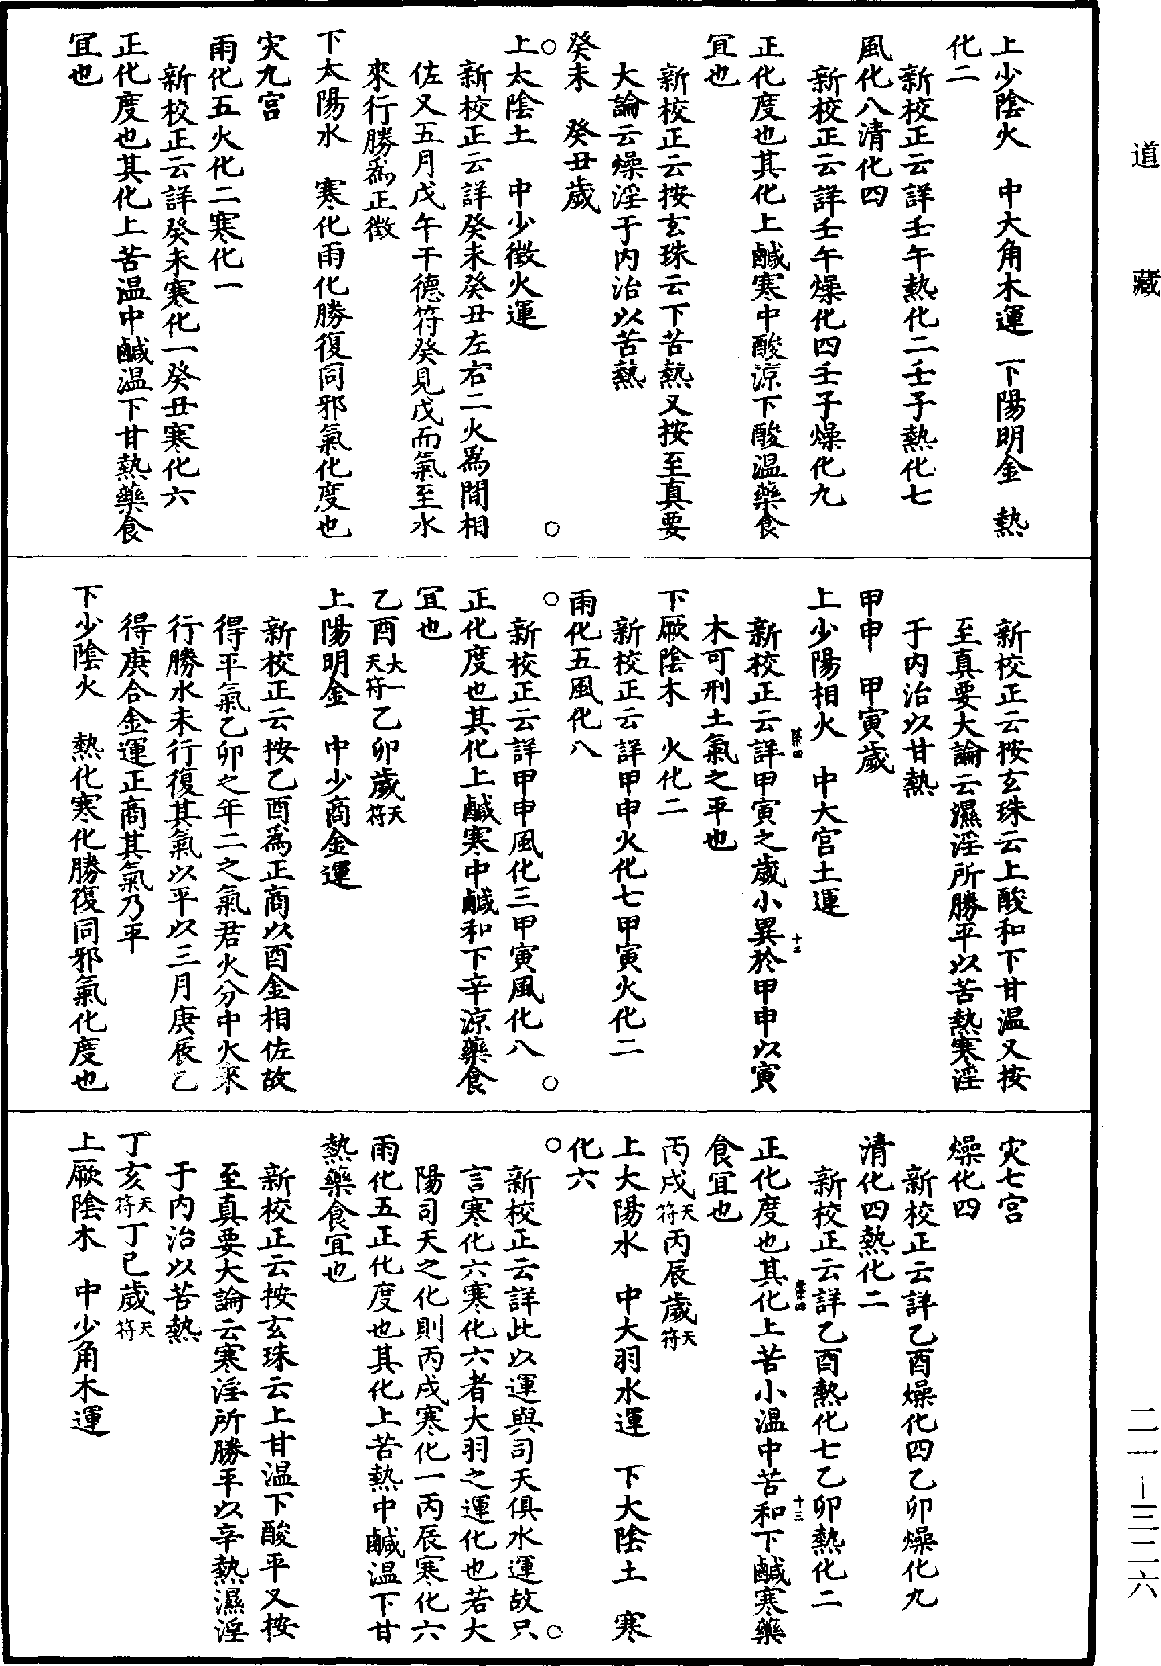 道藏
上少陰火　中大角木運　下陽明金　熱
化二
新校正云詳壬午熱化二壬子熱化七
風化八清化四
新校正云詳壬午燥化四壬子燥化九
正化度也其化上鹹寒中酸涼下酸溫藥食
宜也
新校正云按玄珠云下苦熱又按至真要
大論云燥淫于內治以苦熱
癸未　癸丑歲
○　○
上太陰土　中少徵火運
新校正云詳癸未癸丑左右二火為間相
佐又五月戊午干德符癸見戊而氣至水
來行勝為正徵
下太陽水　寒化雨化勝復同邪氣化度也
灾九宮
雨化五火化二寒化一
新校正云詳癸未寒化一癸丑寒化六
正化度也其化上苦溫中鹹溫下甘熱藥食
宜也
新校正云按玄珠云上酸和下甘溫又按
至真要大論云濕淫所勝平以苦熱寒淫
于內治以甘熱
甲申　甲寅歲
上少陽相火　中大宮土運
柒四　十二
新校正云詳甲寅之歲小異於甲申以寅
木可刑土氣之平也
下厥陰木　火化二
新校正云詳甲申火化七甲寅火化二
雨化五風化八
○　○
新校正云詳甲申風化三甲寅風化八
正化度也其化上鹹寒中鹹和下辛涼藥食
宜也
乙酉大一天符乙卯歲天符
上陽明金　中少商金運
新校正云按乙酉為正商以酉金相佐故
得平氣乙卯之年二之氣君火分中火來
行勝水未行復其氣以平以三月庚辰乙
得庚合金運正商其氣乃平
下少陰火　熱化寒化勝復同邪氣化度也
灾七宮
燥化四
新校正云詳乙酉燥化四乙卯燥化九
清化四熱化二
新校正云詳乙酉熱化七乙卯熱化二
柒四　十三
正化度也其化上苦小溫中苦和下鹹寒藥
食宜也
丙戌天符丙辰歲天符
上大陽水　中大羽水運　下大陰土　寒
化六
○　○
新校正云詳此以運與司天俱水運故只
言寒化六寒化六者大羽之運化也若大
陽司天之化則丙戌寒化一丙辰寒化六
雨化五正化度也其化上苦熱中鹹溫下甘
熱藥食宜也
新校正云按玄珠云上甘溫下酸平又按
至真要大論云寒淫所勝平以辛熱濕淫
于內治以苦熱
丁亥天符丁巳歲天符
上厥陰木　中少角木運
二一－三二六